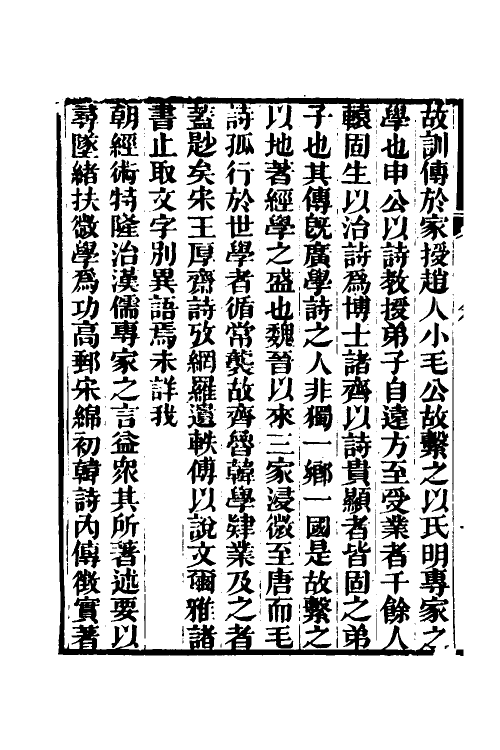 故訓傳於家授趙人小毛公故繫之以氏明專家之
學也申公以詩教授弟子自遠方至受業者千餘人
轅固生以治詩爲博士諸齊以詩貴顯者皆固之弟
子也其傳旣廣學詩之人非獨一鄉一國是故繫之
以地著經學之盛也魏晉以來三家浸微至唐而毛
詩孤行於世學者循常襲故齊魯韓學肄業及之者
蓋尟矣宋王厚齋詩攷網羅遺軼傅以說文爾雅諸
書止取文字別異語焉未詳我
朝經術特隆治漢儒專家之言益衆其所著述要以
尋墜緒扶微學爲功高郵宋綿初韓詩內傳徵實著